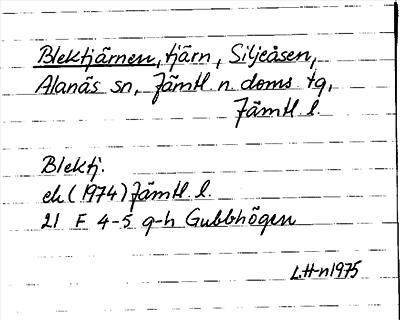 Blektjärnen, tjärn, Siljeåsen,
Alanäs sn, Jämtl. n. doms tg,
Jämtl l.
Blektj.
ek (1974) Jämtl. l.
21 F 4-5 g-h Gubbhögen
L.H-n 1975